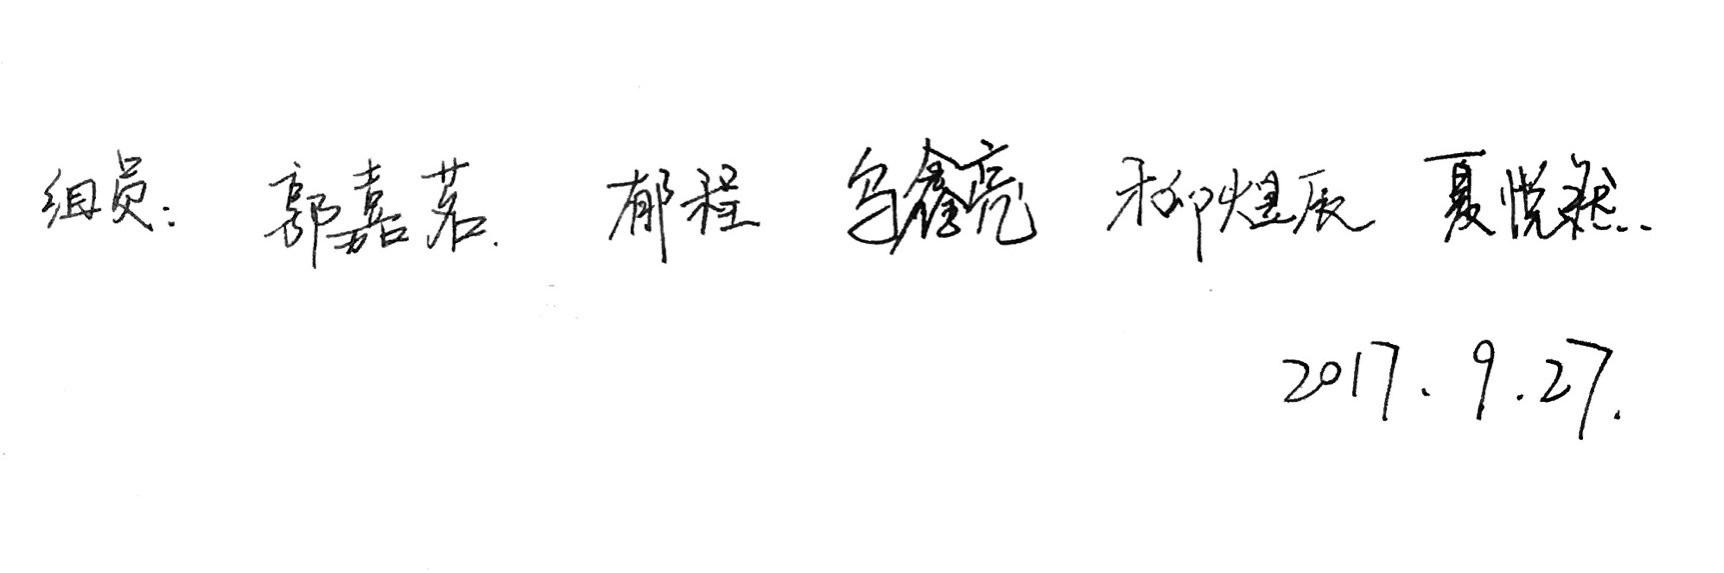 组员: 郭嘉茗. 郁程 乌鑫亮 柳煜辰 夏悦
2017.9.27.